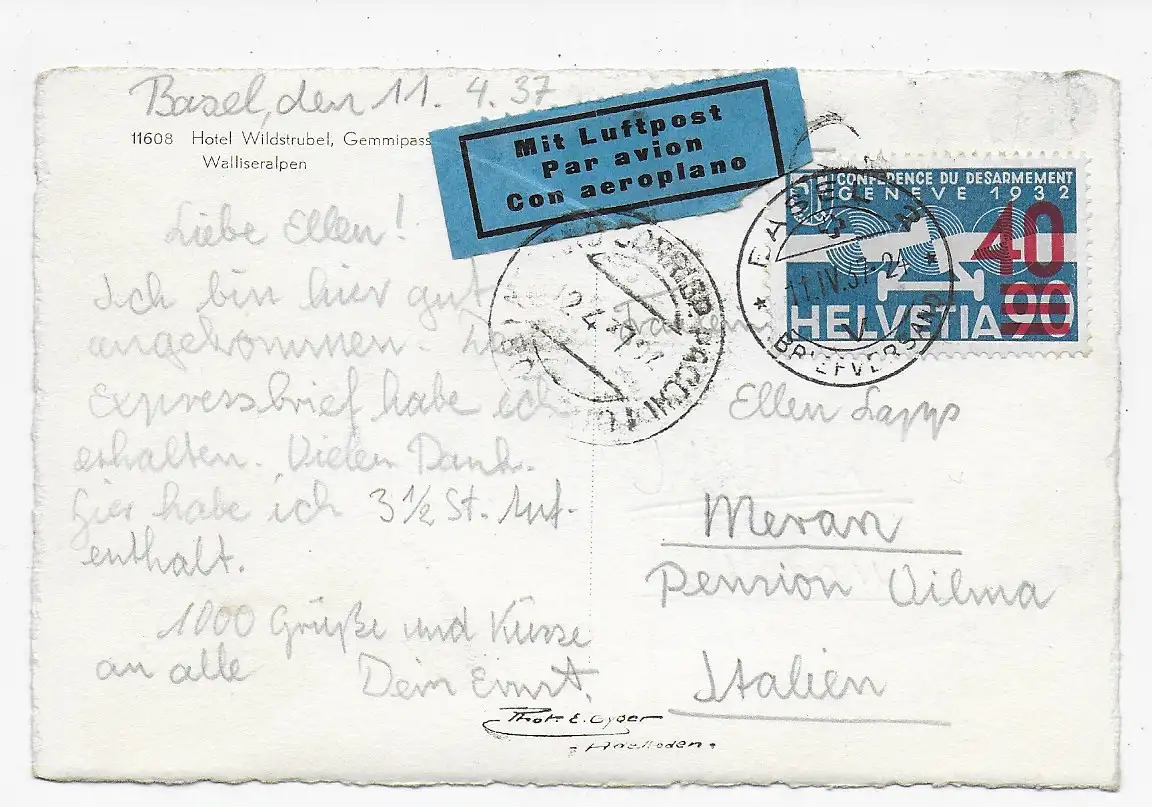 Basel, den 11. 4. 37
11608 Hotel Wildstrubel, Gemmipass
Walliseralpen
Mit Luftpost
Par avion
Con aeroplano
CONFERENCE DU DESARMEMENT
GENEVE 1932
40
HELVETIA 90
BASEL
11.IV.37-24
BRIEFVERSAND
Liebe Ellen!
Ich bin hier gut
angekommen.
Expressbrief habe ich
erhalten. Vielen Dank.
Hier habe ich 3 1/2 St. Auf-
enthalt.
1000 Grüße und Küsse
an alle
Dein Ernst.
Ellen Lapps
Meran
Pension Vilma
Italien
Phot. E. Gyger
Adelboden